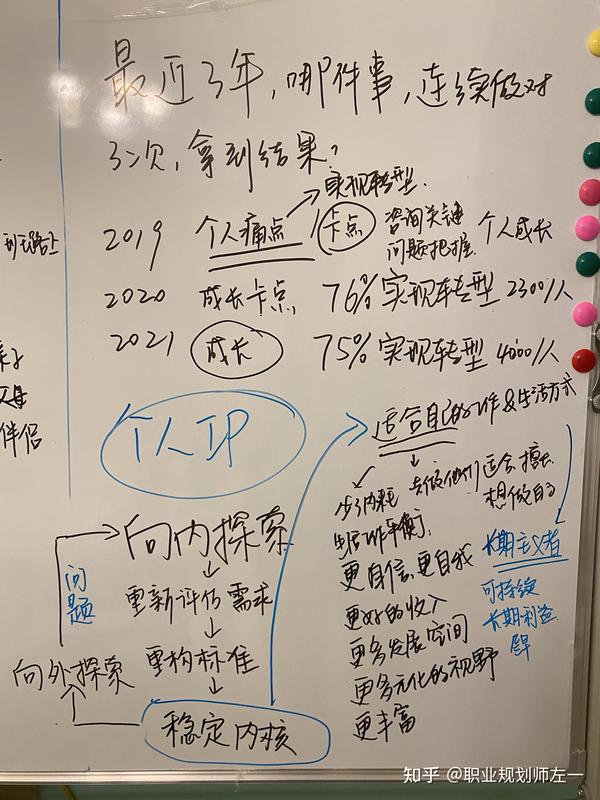 最近3年,哪件事,连续做对
3次,拿到结果?
实现转型.
2019 个人痛点/卡点 咨询关键
问题把握 个人成长
2020 成长卡点 76%实现转型 2300/人
2021 成长 75%实现转型 4000/人
个人IP
适合自己的工作&生活方式
少了内耗 去做他们适合、擅长、
想做的
生活工作平衡.
更自信、更自我
更好的收入
更多发展空间
更多元化的视野
更丰富
长期主义者
可持续
长期利益
向内探索
重新评估需求
重构标准
稳定内核
向外探索
问题
伴侣
知乎 @职业规划师左一